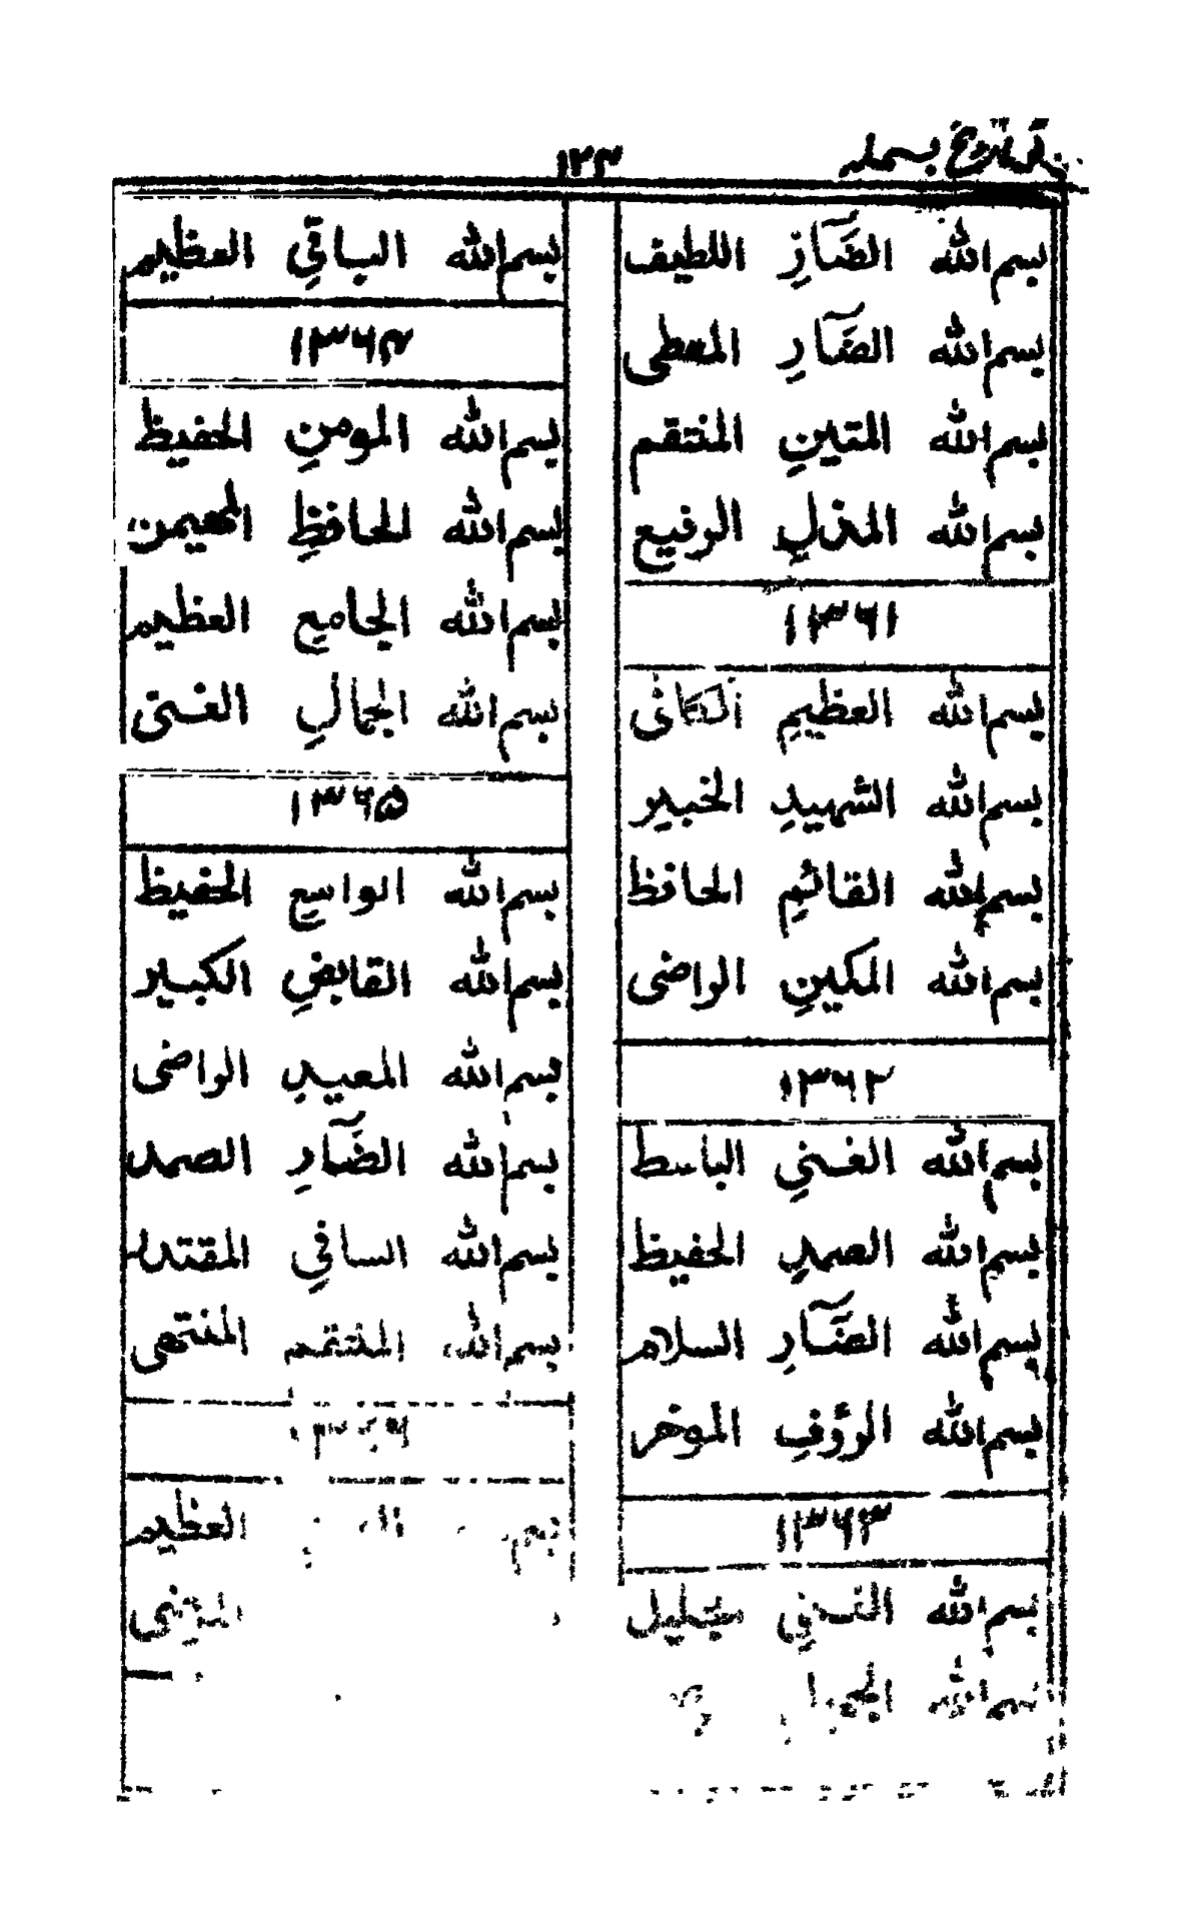 ۱۲۴
بسم الله الضَّآرِّ اللطيف
بسم الله الضَّآرِ المعطى
بسم الله المتينِ المنتقم
بسم الله المذلِ الرفيع
۱۳۶۱
بسم الله العظيمِ الكافى
بسم الله الشهيدِ الخبير
بسم الله القائمِ الحافظ
بسم الله المكينِ الواضى
۱۳۶۲
بسم الله الغنيِ الباسط
بسم الله الصمدِ الحفيظ
بسم الله الضَّآرِ السلام
بسم الله الرؤفِ الموخر
۱۳۶۳
بسم الله الغنيِ
بسم الله
بسم الله الباقيِ العظيم
۱۳۶۴
بسم الله المومنِ الحفيظ
بسم الله الحافظِ المهيمن
بسم الله الجامعِ العظيم
بسم الله الجمالِ الغنى
۱۳۶۵
بسم الله الواسعِ الحفيظ
بسم الله القابضِ الكبير
بسم الله المعيدِ الواضى
بسم الله الضَّآرِ الصمد
بسم الله السافيِ المقتدر
بسم الله المنتقم المنتهى
العظيم